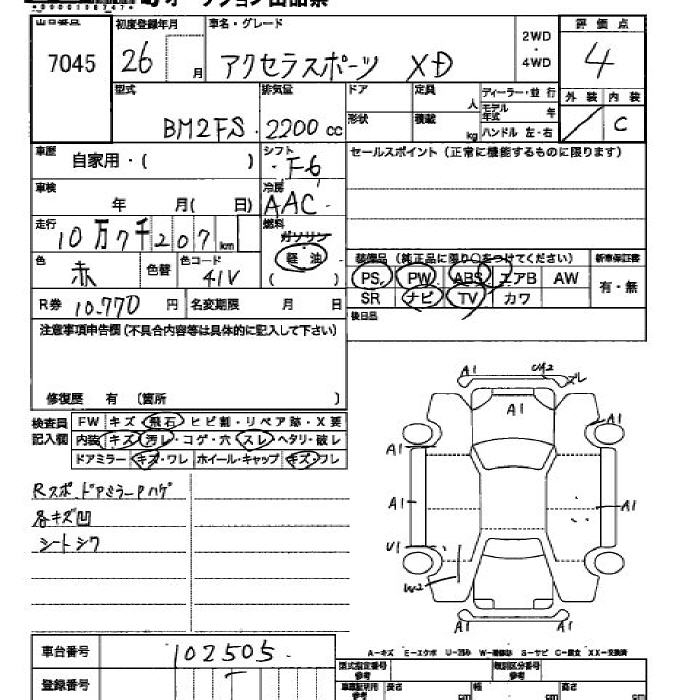 オークション出品票
出品番号 初度登録年月 車名・グレード 2WD ・ 4WD 評価点
7045 26 月 アクセラスポーツ XD 4
型式 排気量 ドア 定員 人 ディーラー・並行 外装 内装
BM2FS 2200 cc 形状 積載 kg モデル年式 年 C
ハンドル 左・右
車歴 自家用・( ) シフト F6 セールスポイント(正常に機能するものに限ります)
車検 年 月( 日) 冷房 AAC
走行 10万7千207 km 燃料 ガソリン 軽・油 ( )
色 赤 色替 色コード 41V 装備品(純正品に限り○をつけてください) 新車保証書
PS PW ABS エアB AW 有・無
R券 10.770 円 名変期限 月 日 SR ナビ TV カワ
後日品
注意事項申告欄(不具合内容等は具体的に記入して下さい)
修復歴 有 〔箇所 〕
検査員記入欄 FW キズ・飛石・ヒビ割・リペア跡・X要
内装 キズ・汚レ・コゲ・穴・スレ・ヘタリ・破レ
ドアミラー キズ・ワレ ホイール・キャップ キズ・フレ
Rスポ ドアミラーPハゲ
各キズ凹
シートシワ
A1 U42 ズレ
A1
A1
A1
A1 A1
U1
W2
A1 A1
A-キズ E-エクボ U-凹み W-補修跡 S-サビ C-腐食 XX-交換済
車台番号 102505
登録番号 型式指定番号 参考 類別区分番号 参考
車庫証明用 参考 長さ cm 幅 cm 高さ cm